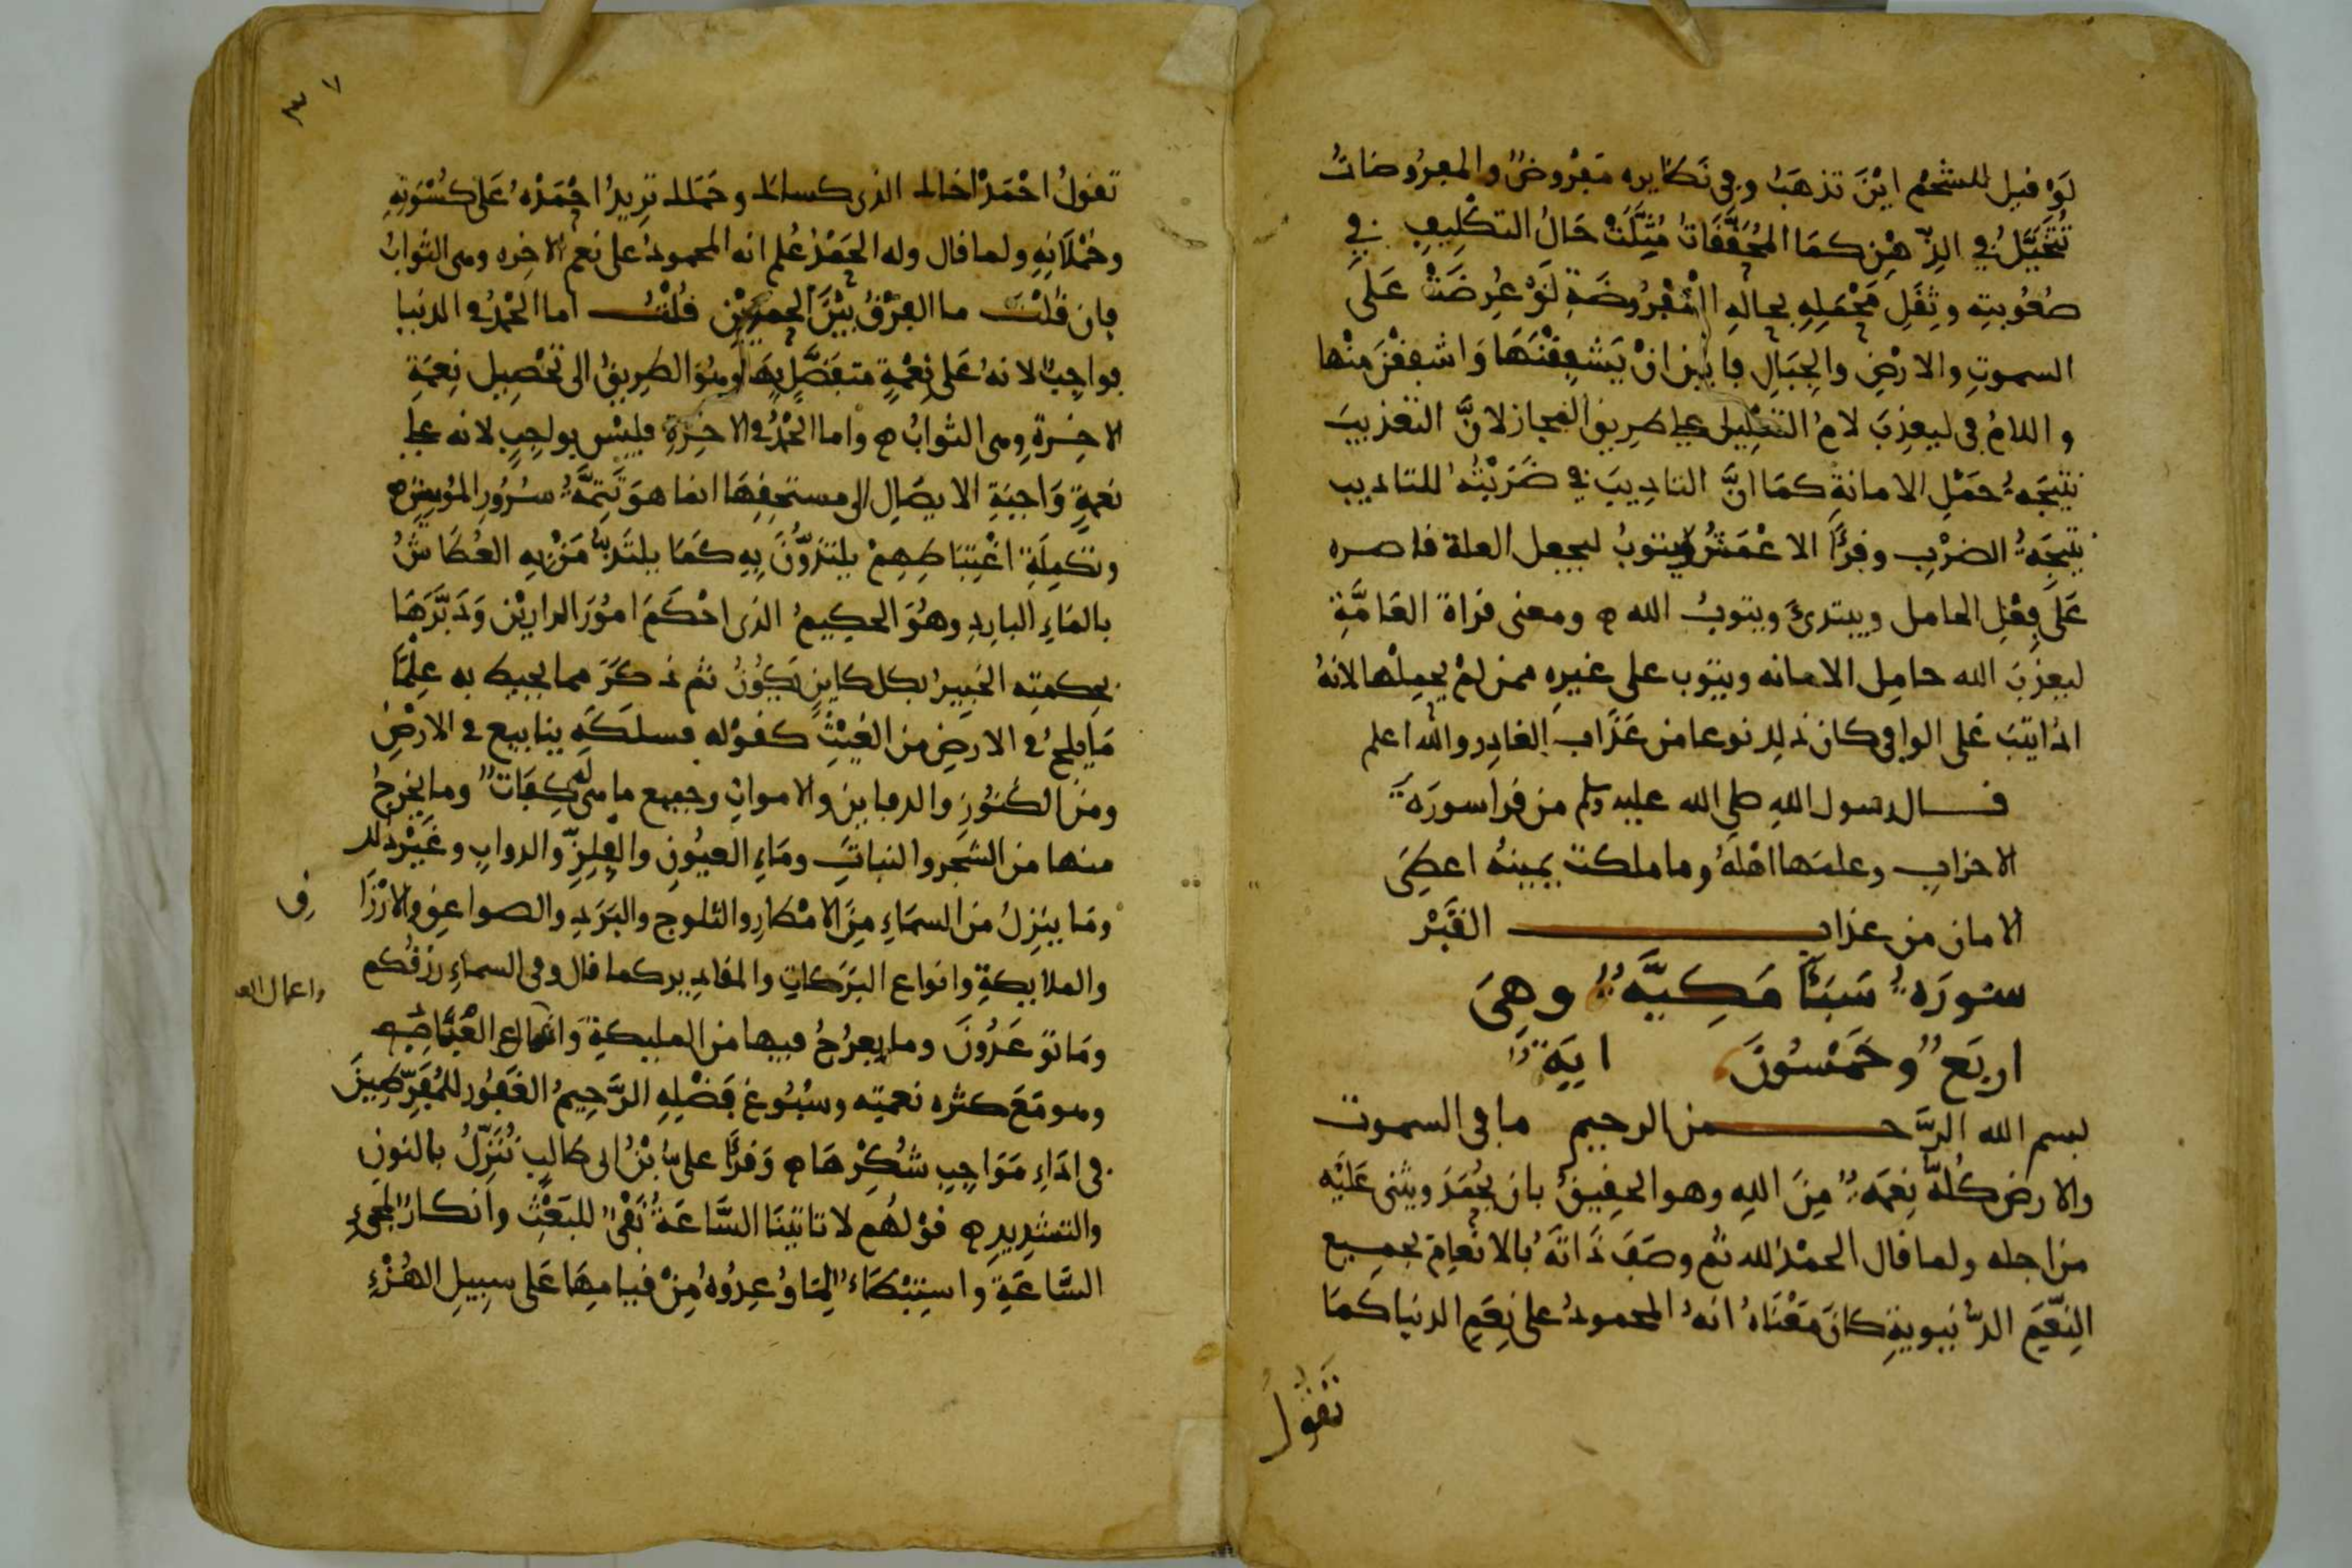 لَوْ قيل للشحْم ايْنَ تذهَبُ وفي نَظايره مَفْروضٌ والمفرُوضاتُ
تُتَخَيَّلُ في الذِّهْنِ كمَا المُحَقَّقَاتُ مُثِّلَتْ حَالُ التكْلِيفِ في
صُعُوبتِه وثِقَلِ مَحْمَلِهِ بحالِهِ المَفْرُوضَةِ لَوْ عُرِضَتْ عَلَى
السموتِ والارْضِ والجِبَالِ فابين انْ يَحْمِلْنَهَا وَاشفقْنَ منْها
واللامُ في ليعذِبَ لامُ التعْلِيل على طريق المجاز لانَّ التعْذيبَ
نتيجَةُ حَمْلِ الامانةِ كمَا انَّ التادِيبَ في ضَرَبْتُهُ للتاديب
نتيجَةُ الضرْبِ وقرَأ الاعْمَشُ ويتوبُ ليجعل العلة قاصره
عَلَى فِعْلِ الحامل ويبتدئُ ويتوبُ الله ه ومعنى قراة العَامَّةِ
ليعذِبَ الله حامِل الامانه ويتوب على غيرِه ممن لمْ يحمِلْها لانهُ
اذا تيبَ عَلى الوافي كان ذلك نوعا من عَذَابِ الغادِر والله اعلم
قال رسول اللهِ صلى الله عليه وسلم من قرا سورَةَ
الاحزابِ وعلمَها اهْلَهُ وما ملكت يمينهُ اعطِىَ
الامان من عذاب القَبْر
سورَة سَبَأ مَكِيَّةٌ وهِىَ
اربَعٌ وخَمْسُونَ ايَةً
بسم الله الرَّحمن الرحيم ما في السموت
والارض كُلهُ نِعْمَةٌ مِنَ اللهِ وهو الحقِيقُ بان يُحْمَدَ ويثنى عَلَيْه
من اجله ولما قال الحمْدُ لله ثم وصَفَ ذَاتَهُ بالانْعامِ بجميع
النِّعَمِ الدُّنيويةِ كانَ مَعْنَاهُ انهُ المحمودُ على نِعَمِ الدنيا كمَا
تَقُولُ
٣٧
تقولُ احْمَدْ اخاك الذى كساك وحَمَلك تريدُ احْمَدْهُ عَلَى كُسْوَتِهِ
وحُمْلَانِهِ ولما قال وله الحَمْدُ عُلم انه المحمودُ على نعم الاخِره وهى الثوابُ
فان قُلْتَ ما الفرْقُ بَيْنَ الحمدَيْن قُلْتُ اما الحْمْدُ في الدنيا
فواجِبٌ لانهُ عَلى نِعْمَةٍ متفَضَّلٍ بِهَا وهُوَ الطرِيقُ الى تحْصِيل نِعْمَةِ
الاخِرَةِ وهى الثوابُ ه وَاما الحْمْدُ في الاخِرَةِ فليْس بواجِبٍ لانه على
نعمةٍ وَاجبَةِ الايصَالِ الى مستحِقِهَا انما هوَ تتِمَّةُ سُرُورِ المُومِنِينَ ه
وتكمِلَةُ اغْتِبَاطِهِمْ يلتذُّونَ بِهِ كَمَا يلتَذُّ مَنْ بِهِ العُطَاشُ
بالمَاءِ البارِدِ وهُوَ الحكِيمُ الذى احْكَمَ امُورَ الدارَيْن وَدَبَّرَهَا
بحكمتِهِ الخَبِيرُ بكل كاينٍ يَكُونُ ثم ذكَرَ مما يحيط به عِلْمًا
مَا يلجُ في الارضِ منَ الغَيْثِ كقوْله فسلكَهُ ينابيع في الارْضِ
ومنَ الكُنُوزِ والدفاين والامواتِ وجميع ما هى لَهُ كِفَاتٌ وما يخْرجُ
منها من الشجَر والنباتِ ومَاءِ العيُونِ والفِلِزِّ والدوابِ وغيْر ذلك
ومَا ينزِلُ منَ السمَاءِ مِنَ الامْطارِ والثلوج والبَرَدِ والصواعِقِ والارْزَا
ق
والملايكةِ وانواعِ البَرَكاتِ والمقادِير كما قال وفى السماءِ رزقُكم
ومَا تُوعَدُونَ وما يعرُجُ فيها من المليكةِ وَاعمال العبَاد
واعمال العـ
وهو مَعَ كثره نعمتِه وسُبُوغ فَضْلِهِ الرَّحِيمُ الغَفُورُ للمُفَرِّطِينَ
في ادَاءِ مَوَاجِبِ شُكْرِهَا ه وَقرَأ علىُّ بْنُ ابى طالِبٍ نُنَزِّلُ بالنونِ
والتشدِيدِ ه قوْلهُم لا تاتينَا السَّاعَةُ نَفْىٌ للبَعْثِ وانكارٌ لمجىءِ
السَّاعَةِ واستِبْطاءٌ لِمَا وُعِدُوهُ مِنْ قيامِهَا عَلى سبِيلِ الهُزْءِ